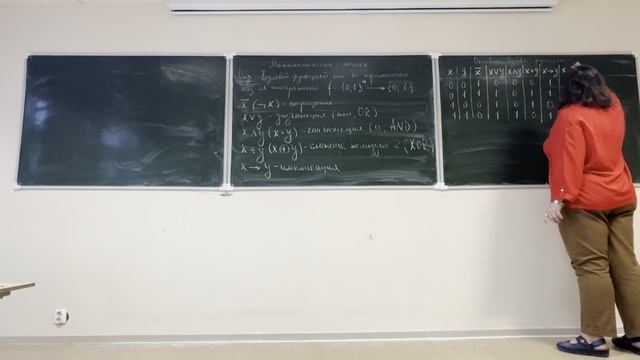 Математическая логика
Опр. Булевой функцией от n переменных
наз-ся отображение f: {0,1}ⁿ → {0,1}.
x̄ (¬x) - отрицание
x∨y - дизъюнкция (или, OR)
x∧y (x·y) - конъюнкция (и, AND)
x+y (x⊕y) - сложение по модулю 2 (XOR)
x→y - импликация
Основные булевы функции
x y x̄ x∨y x∧y x+y x→y x
0 0 1 0 0 0 1
0 1 1 1 0 1 1
1 0 0 1 0 1 0
1 1 0 1 1 0 1